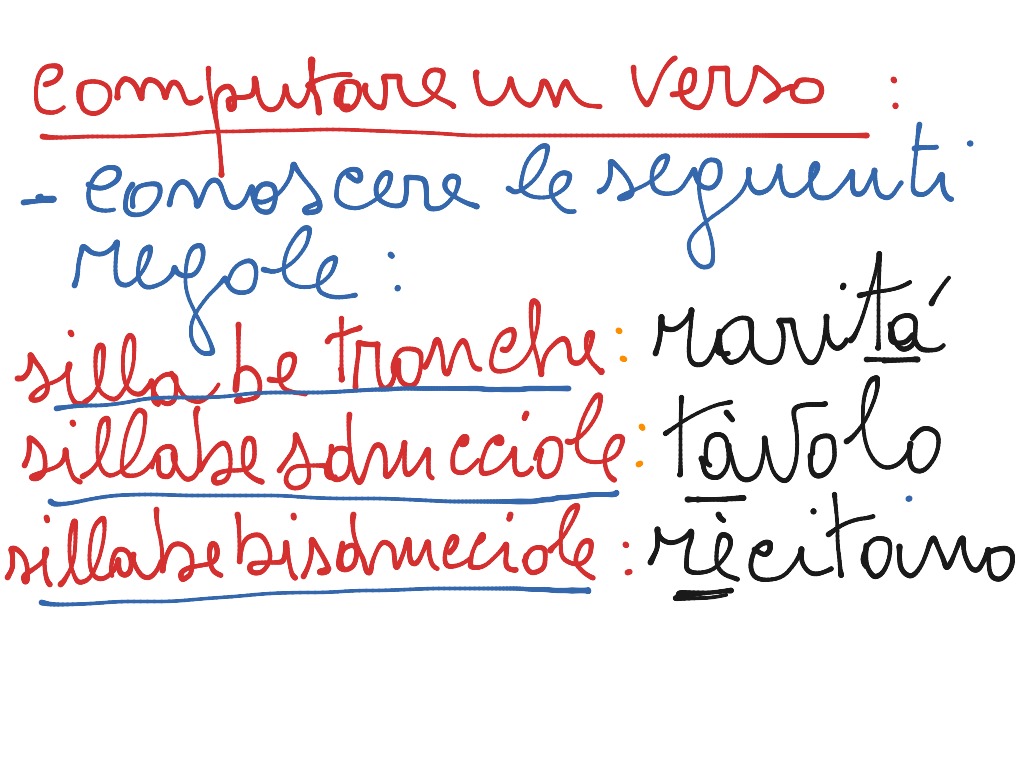 computare un verso :
- conoscere le seguenti
regole :
sillabe tronche : raritá
sillabe sdrucciole : tàvolo
sillabe bisdrucciole : rècitano